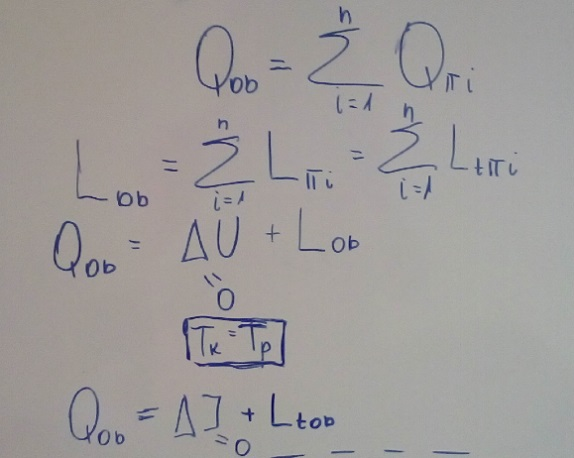 Q_ob = Σ_{i=1}^{n} Q_πi
L_ob = Σ_{i=1}^{n} L_πi = Σ_{i=1}^{n} L_tπi
Q_ob = ΔU + L_ob
=0
Tк = Tр
Q_ob = ΔJ + L_tob
=0